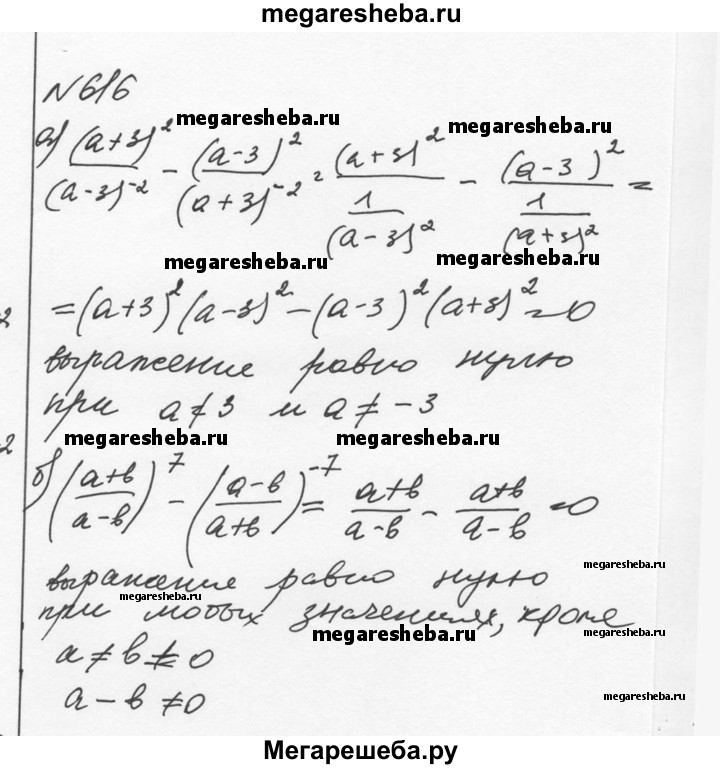 megaresheba.ru
N 616
megaresheba.ru
megaresheba.ru
а) (a+3)^2/(a-3)^-2 - (a-3)^2/(a+3)^-2 = (a+3)^2/(1/(a-3)^2) - (a-3)^2/(1/(a+3)^2) =
megaresheba.ru
megaresheba.ru
= (a+3)^2 (a-3)^2 - (a-3)^2 (a+3)^2 = 0
выражение равно нулю
при a ≠ 3 и a ≠ -3
megaresheba.ru
megaresheba.ru
б) ((a+b)/(a-b))^7 - ((a-b)/(a+b))^-7 = (a+b)/(a-b) - (a+b)/(a-b) = 0
megaresheba.ru
выражение равно нулю
megaresheba.ru
megaresheba.ru
при любых значениях, кроме
megaresheba.ru
megaresheba.ru
a ≠ b ≠ 0
a - b ≠ 0
megaresheba.ru
Мегарешеба.ру
2
2